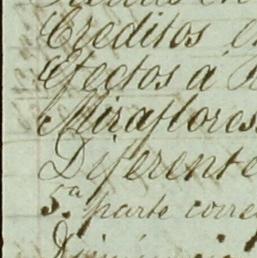 Creditos
Efectos a
Miraflores
Diferente
5.ª parte corre